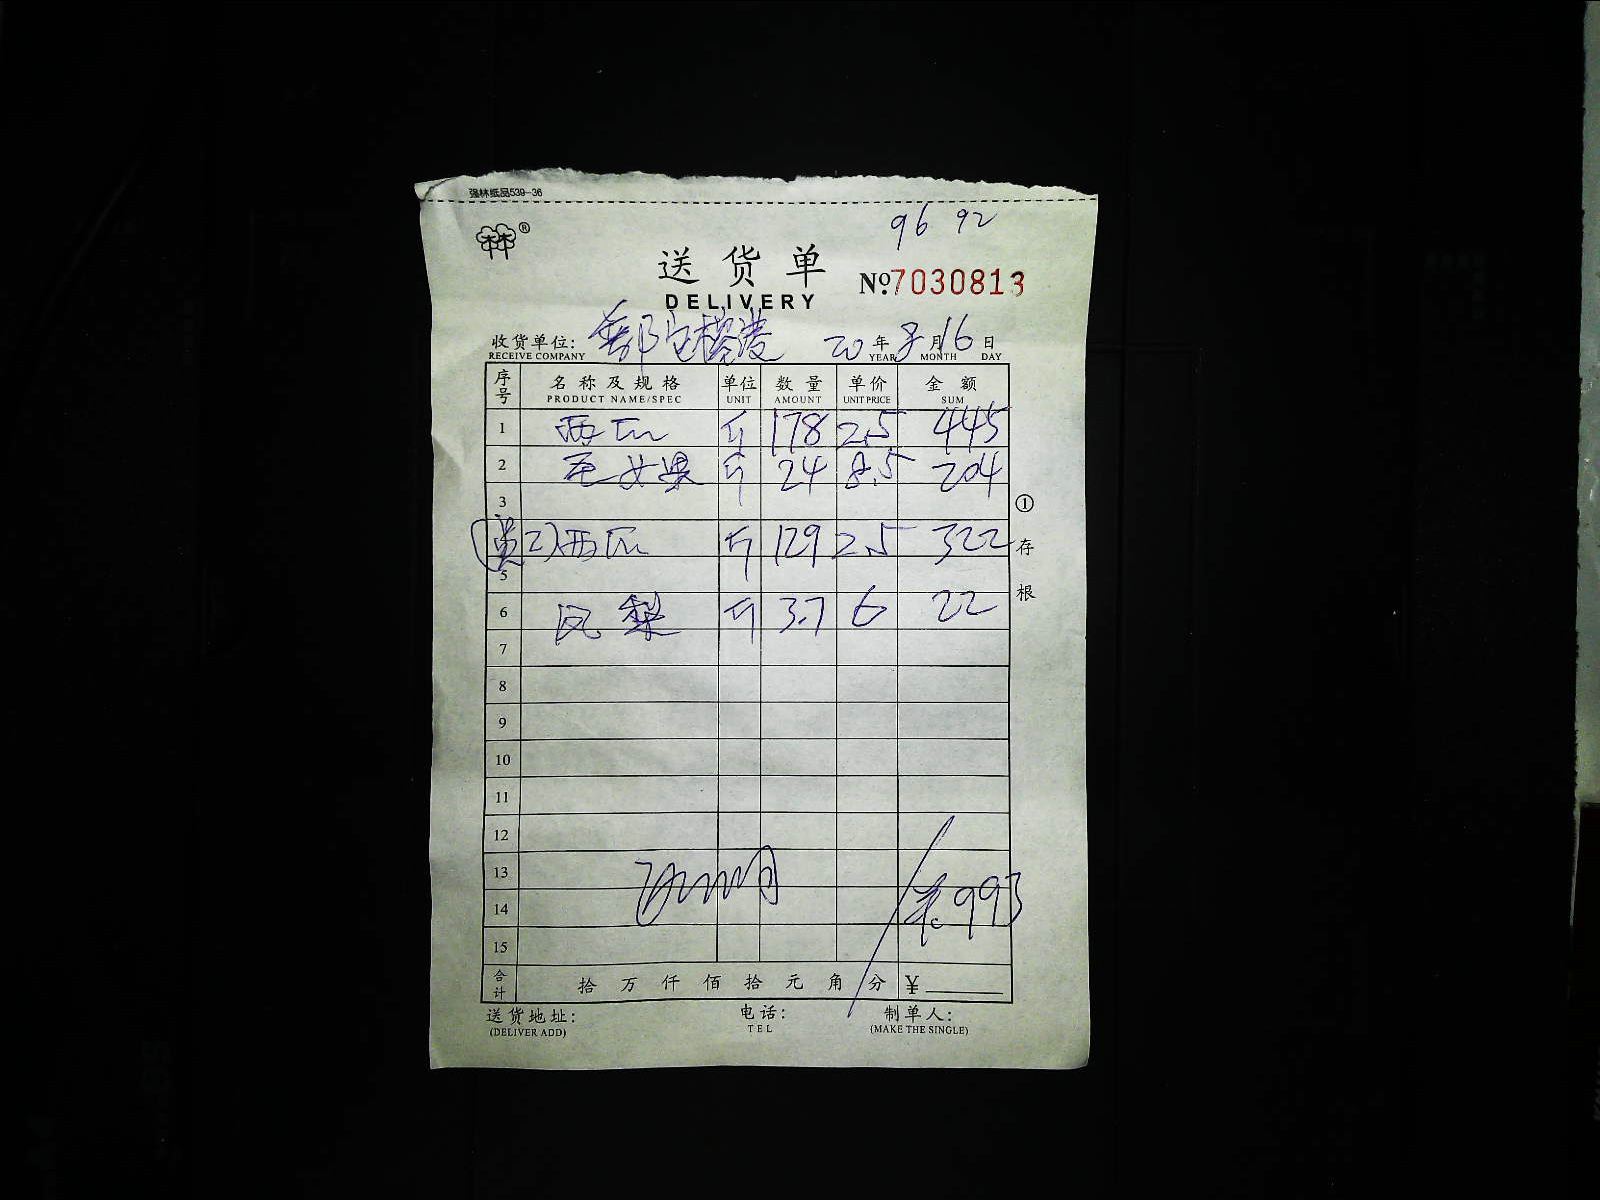 强林纸品539-36
96 92
林林®
送货单
DELIVERY
№7030813
收货单位: 20年8月16日
RECEIVE COMPANY YEAR MONTH DAY
序号 名称及规格 单位 数量 单价 金额
PRODUCT NAME/SPEC UNIT AMOUNT UNIT PRICE SUM
1 西瓜 斤 178 2.5 445
2 斤 24 8.5 204
3
2)西瓜 斤 129 2.5 322
5
6 凤梨 斤 3.7 6 22
7
8
9
10
11
12
13
14 993
15
合计 拾万仟佰拾元角分 ¥
送货地址: 电话: 制单人:
(DELIVER ADD) TEL (MAKE THE SINGLE)
①存根